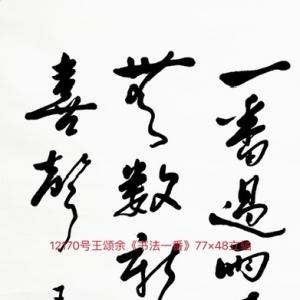 一番過雨
無數新
喜聲
12170号王颂余《书法一番》77×48